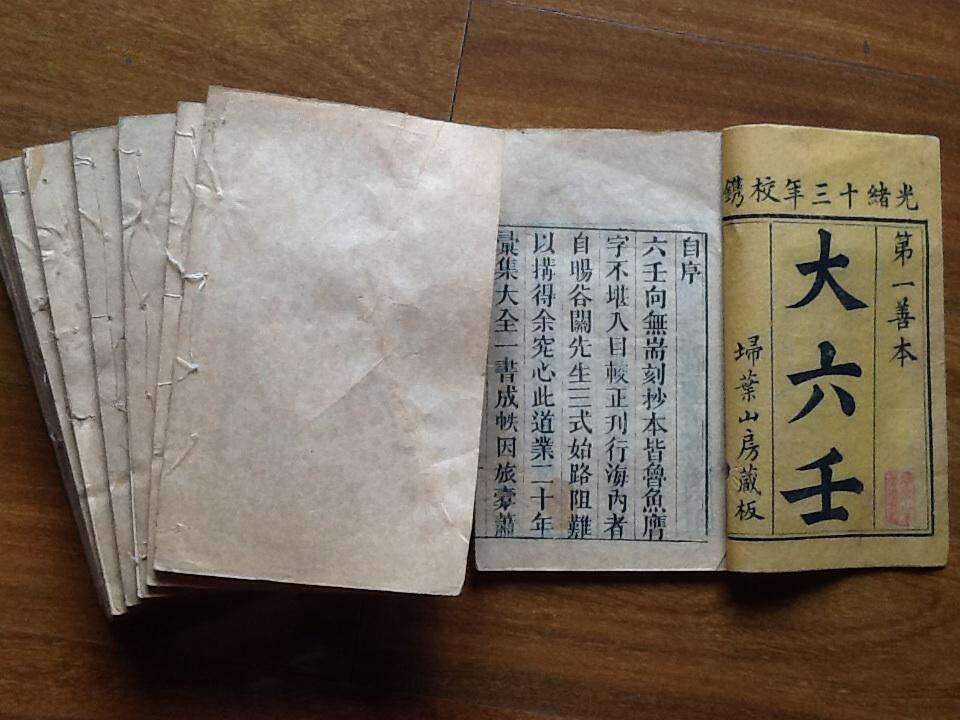 光緒十三年校鐫
第一善本
大六壬
埽葉山房藏板
自序
六壬向無耑刻抄本皆魯魚
字不堪入目較正刊行海內者
自暘谷關先生三式始路阻難
以搆得余究心此道業二十年
彙集大全一書成帙因旅橐蕭